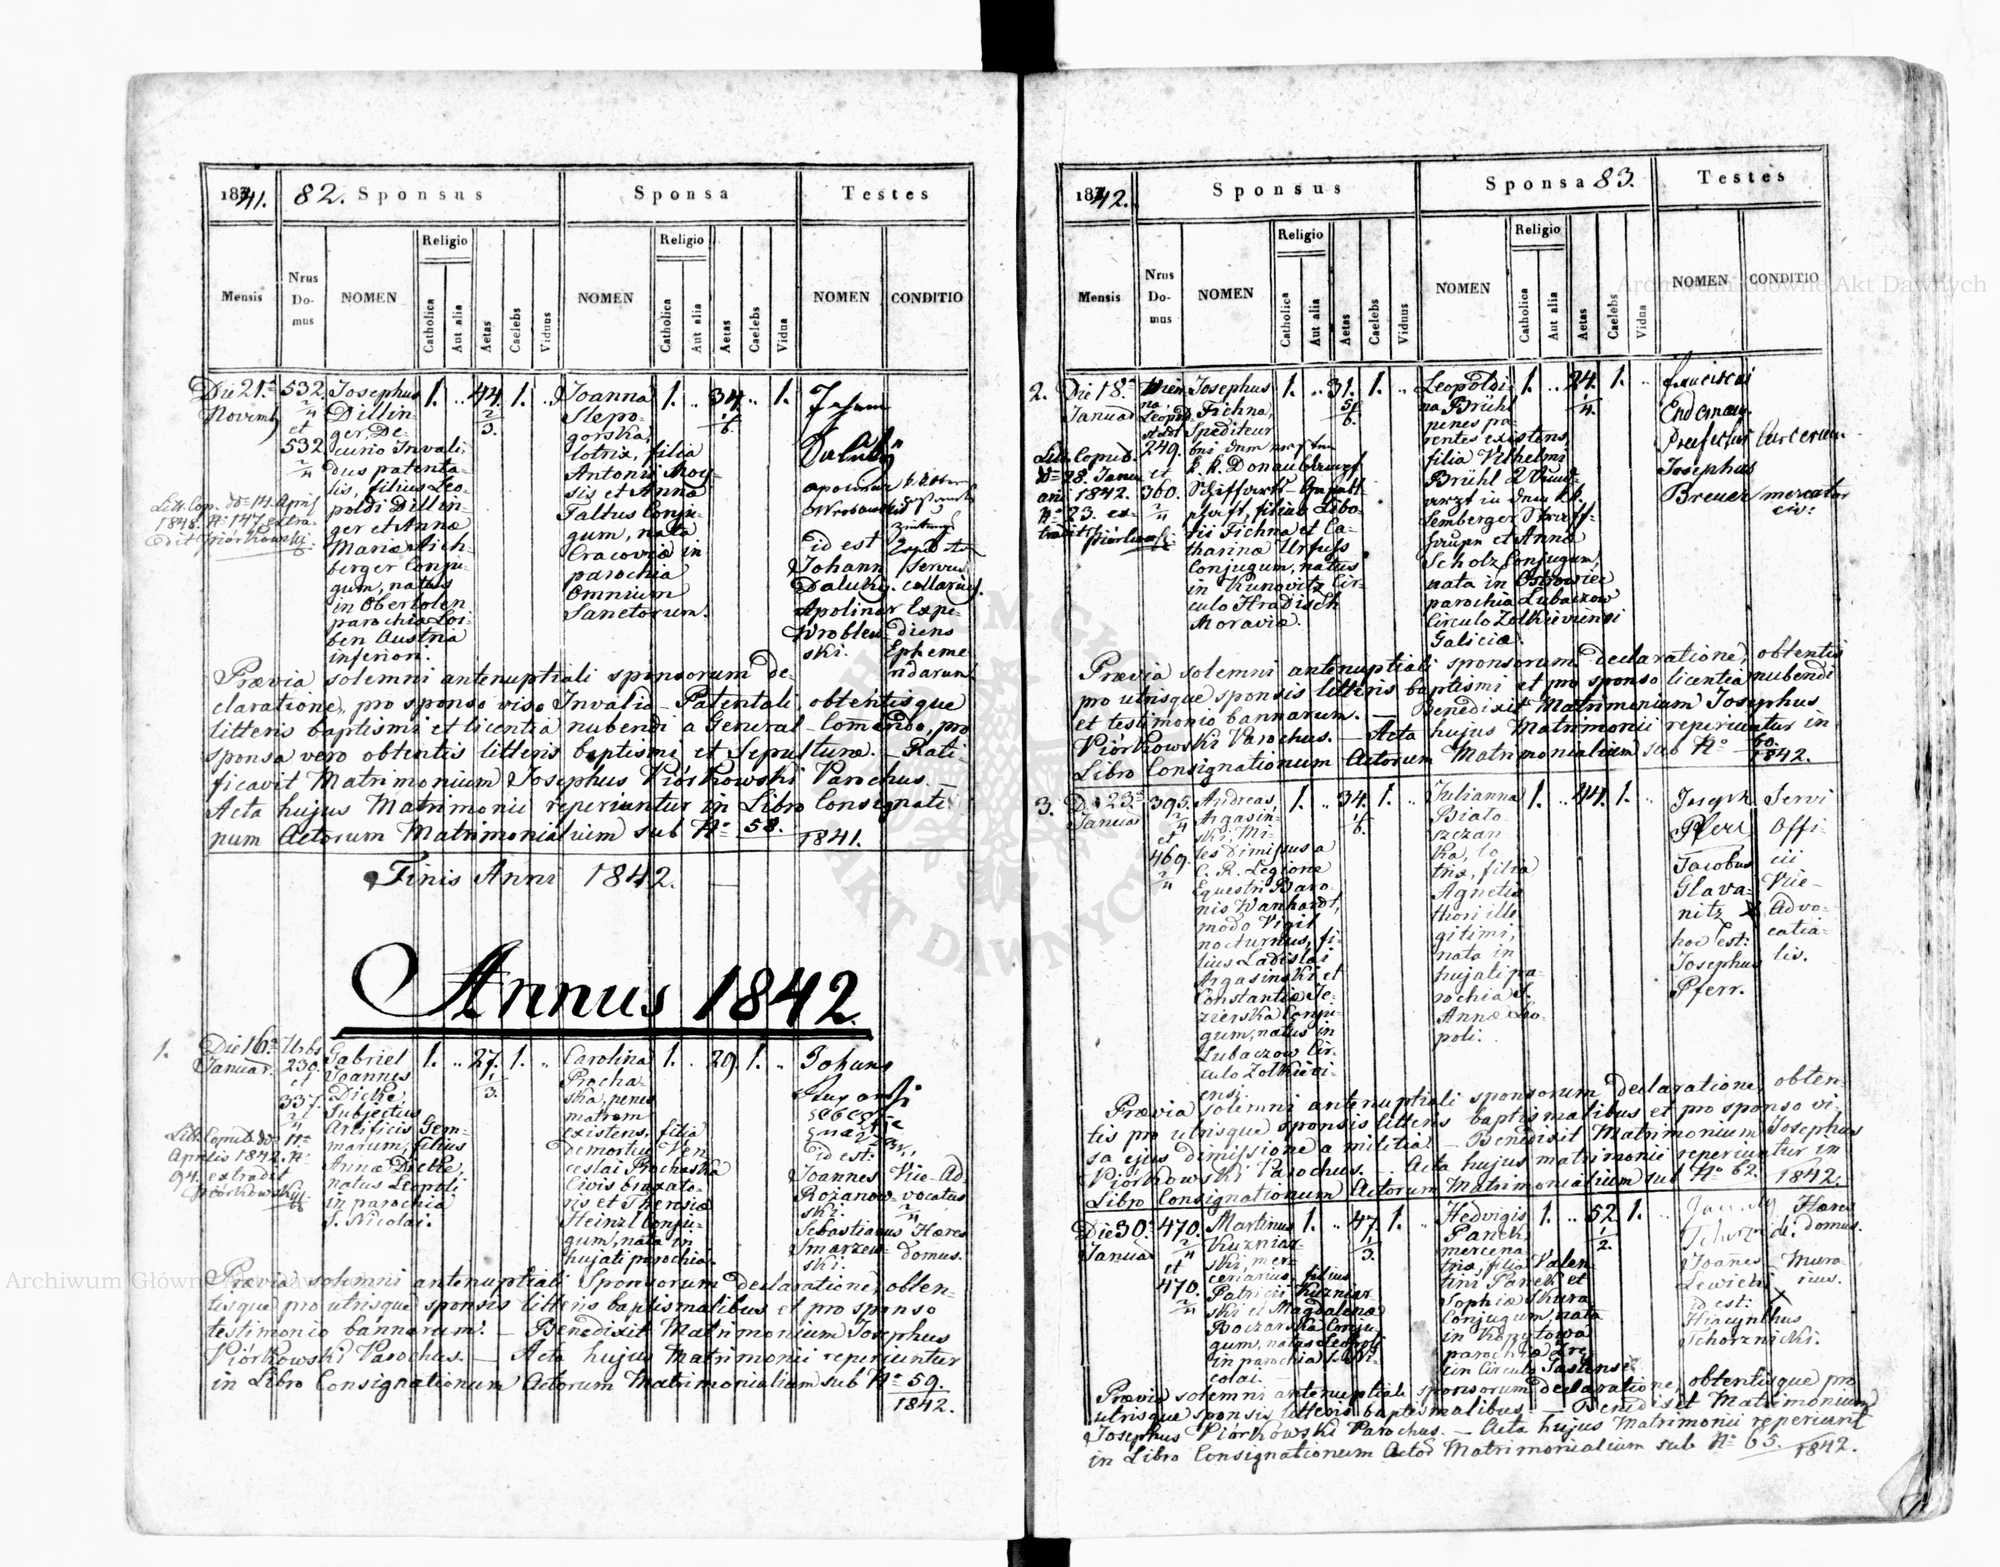 1841.
82. Sponsus
Sponsa
Testes
Mensis
Nrus
Do-
mus
NOMEN
Religio
Catholica
Aut alia
Aetas
Caelebs
Viduus
NOMEN
Religio
Catholica
Aut alia
Aetas
Caelebs
Vidua
NOMEN
CONDITIO
Die 21ª
Novemb
532
2/4
et
532
2/4
Josephus
Dillin
ger, De-
curio Invali,
dus patenta-
lis, filius Leo-
poldi Dillin-
ger et Annæ
Mariæ Aich-
berger Conju-
gum, natus
in Oberlolen
parochia Loi-
ben Austria
inferiori.
1. .. 44. 1. ..
2/3.
Joanna
Slepo-
gorska,
lotrix, filia
Antonii Moy-
sis et Anna
Taltus Conju-
gum, nata
Cracoviæ in
parochia
Omnium
Sanctorum.
1. .. 34. .. 1.
1/6
Johann
Daluky
id est
Johann
Daluky.
Servus
cellarius.
Apolinar
Wroblew-
ski.
Expe-
diens
Epheme
ridarum.
Litt. Cop. dto 14. April
1848. Nº 147. extra-
Piórkowski
Prævia solemni antenuptiali sponsorum de-
claratione, pro sponso viso Invalid-Patentali, obtentisque
litteris baptismi et licentia nubendi a General-Comendo, pro
sponsa vero obtentis litteris baptismi et Sepulturæ. — Rati-
ficavit Matrimonium Josephus Piórkowski Parochus. —
Acta hujus Matrimonii reperiuntur in Libro Consignatio-
num Actorum Matrimonialium sub Nº 58.
1841.
Finis Anni 1842. —
Annus 1842.
1.
Die 16ª
Januar.
Urbs
230.
et
337.
2/4
Gabriel
Joannes
Dietke,
Subjectus
Artificis Gem-
marum, filius
Annæ Dietke,
natus Leopoli
in parochia
S. Nicolai.
1. .. 27. 1. ..
1/3.
Carolina
Procha-
ska, penes
matrem
existens, filia
demortui Ven-
ceslai Prochaska
Civis braxato-
ris et Theresiæ
Heinzl Conju-
gum, nata in
hujati parochia.
1. .. 29. 1. ..
Johann
id est:
Joannes
Rozanow-
ski.
Vice-Ad-
vocatus
Sebastianus
Smarzew-
ski.
Hæres
domus.
Litt. Copul. dto 11ª
Aprilis 1842. Nº
94. extradit
Piórkowski
Prævia solemni antenuptiali Sponsorum declaratione, obten-
tisque pro utrisque sponsis litteris baptismalibus et pro sponso
testimonio bannorum. — Benedixit Matrimonium Josephus
Piórkowski Parochus. — Acta hujus Matrimonii reperiuntur
in Libro Consignationum Actorum Matrimonialium sub Nº 59.
1842.
1842.
Sponsus
Sponsa 83.
Testes
Mensis
Nrus
Do-
mus
NOMEN
Religio
Catholica
Aut alia
Aetas
Caelebs
Viduus
NOMEN
Religio
Catholica
Aut alia
Aetas
Caelebs
Vidua
NOMEN
CONDITIO
2.
Die 18ª
Januar
249.
et
360.
2/4
Josephus
Fichna,
Spediteur
k. k. Donau Dampf
Schiffarts-Gesell-
schaft, filius Libo-
rii Fichna et Ca-
tharinæ Urfuss
Conjugum, natus
in Kunovitz Cir-
culo Hradisch
Moraviæ.
1. .. 31. 1. ..
5/6.
Leopoldi-
na Brühl
penes pa-
rentes existens,
filia Vilhelmi
Brühl
et Annæ
Scholz Conjugum,
nata in Ostrowiec
parochia Lubaczow
Circulo Zolkieviensi
Galiciæ.
1. .. 24. 1. ..
1/4.
Franciscus
Endemann
Præfectus Carcerum.
Josephus
Breuer mercator
civ:
Litt. Copul.
dto 28. Janu
ari 1842.
Nº 23. ex-
tradit Piórkowski
Prævia solemni antenuptiali sponsorum declaratione, obtentis
pro utrisque sponsis litteris baptismi et pro sponso licentia nubendi
et testimonio bannorum. — Benedixit Matrimonium Josephus
Piórkowski Parochus. — Acta hujus Matrimonii reperiuntur in
Libro Consignationum Actorum Matrimonialium sub Nº 60.
1842.
3.
Die 23ª
Januar
395.
2/4
et
469.
2/4
Andreas,
Argasin-
ski, Mi-
les dimissus a
C. R. Legione
Equestri Baro-
nis Wanhardt,
modo Vigil
nocturnus, fi-
lius Ladislai
Argasinski et
Constantiæ Je-
zierska Conju-
gum, natus in
Lubaczow Cir-
culo Zolkievi-
ensi.
1. .. 34. 1. ..
1/6.
Julianna
Bialo-
szczan
ka, lo
trix, filia
Agnetis
illé-
gitimi,
nata in
hujati pa-
rochia S.
Annæ Leo-
poli.
1. .. 44. 1. ..
Joseph
Pferr
Servi
Offi-
cii
Jacobus
Glava-
nitz
Vice-
Advo-
catia-
lis.
hoc est:
Josephus
Pferr.
Prævia solemni antenuptiali sponsorum declaratione, obten-
tis pro utrisque sponsis litteris baptismalibus et pro sponso vi-
sa ejus dimissione a militia. — Benedixit Matrimonium Josephus
Piórkowski Parochus. — Acta hujus matrimonii reperiuntur in
Libro Consignationum Actorum Matrimonialium sub Nº 62. 1842.
Die 30ª
Januar
470.
2/4
et
470.
2/4
Martinus
Kuzniar-
ski, mer-
cenarius, filius
Patricii Kuzniar
ski et Magdalenæ
Boczarska Conju-
gum, natus Leopoli
in parochia S. Ni-
colai.
1. .. 47. 1. ..
1/3.
Hedvigis
Panek,
mercena
tria, filia Valen-
tini Panek et
Sophiæ Skura
Conjugum, nata
in Kopytowa
parochiæ Zrę
cin Circulo Jaslensi.
1. .. 52. 1. ..
1/2.
Hæres
domus.
Joannes
Lewicki
Mura-
rius.
id est:
Hiacynthus
Schorznicki.
Prævia solemni antenuptiali sponsorum declaratione, obtentisque pro
utrisque sponsis litteris baptismalibus. — Benedixit Matrimonium
Josephus Piórkowski Parochus. — Acta hujus Matrimonii reperiunt
in Libro Consignationum Actor Matrimonialium sub Nº 65. 1842.
Archiwum Główne Akt Dawnych
Archiwum Główne Akt Dawnych